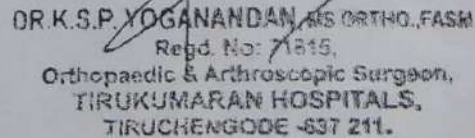 DR.K.S.P. YOGANANDAN, MS ORTHO.,FASM
Regd. No: 71815,
Orthopaedic & Arthroscopic Surgeon,
TIRUKUMARAN HOSPITALS,
TIRUCHENGODE -637 211.